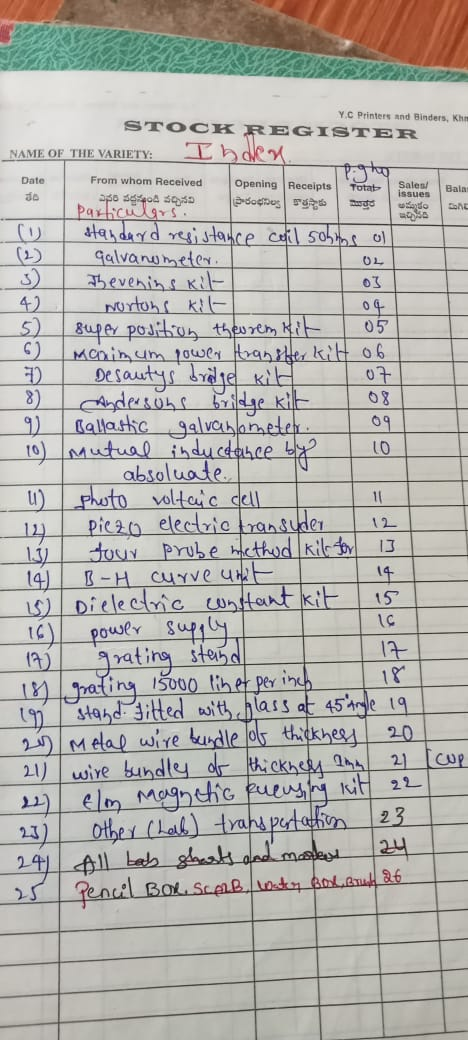 Y.C Printers and Binders, Khm
STOCK REGISTER
NAME OF THE VARIETY: Index
Date From whom Received Opening Receipts Total Sales/ issues Bala
తేది ఎవరి వద్దనుండి వచ్చినవి ప్రారంభనిల్వ కొత్తస్టాకు మొత్తం అమ్మకం ఇచ్చినది మిగి
Particulers. P.g no
(1) standard resistance coil 5ohms 01
(2) galvanometer. 02
3) Thevenins Kit 03
4) Nortons kit 04
5) super position theorem Kit 05
6) Maximum power transfer kit 06
7) Desautys bridge Kit 07
8) Andersons bridge Kit 08
9) Ballastic galvanometer. 09
10) Mutual inductance by 10
absoluate.
11) photo voltaic cell 11
12) Piezo electric transuder 12
13) four probe method Kit for 13
14) B-H curve unit 14
15) Dielectric constant Kit 15
16) power supply 16
17) grating stand 17
18) grating 15000 lines per inch 18
19) stand fitted with glass at 45° Angle 19
20) Metal wire bundle of thickness 20
21) wire bundles of thickness 2mm 21 [cup
22) Elm Magnetic Kit 22
23) other (Lab) transportation 23
24) All Lab and 24
25 Pencil Box, Box, Brush 26